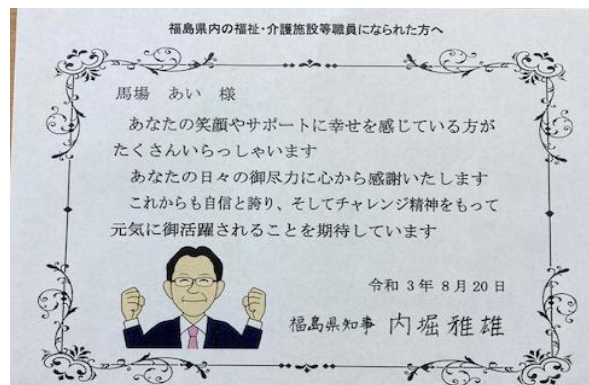 福島県内の福祉・介護施設等職員になられた方へ
馬場　あい　様
あなたの笑顔やサポートに幸せを感じている方が
たくさんいらっしゃいます
あなたの日々の御尽力に心から感謝いたします
これからも自信と誇り、そしてチャレンジ精神をもって
元気に御活躍されることを期待しています
令和 3 年 8 月 20 日
福島県知事 内堀雅雄